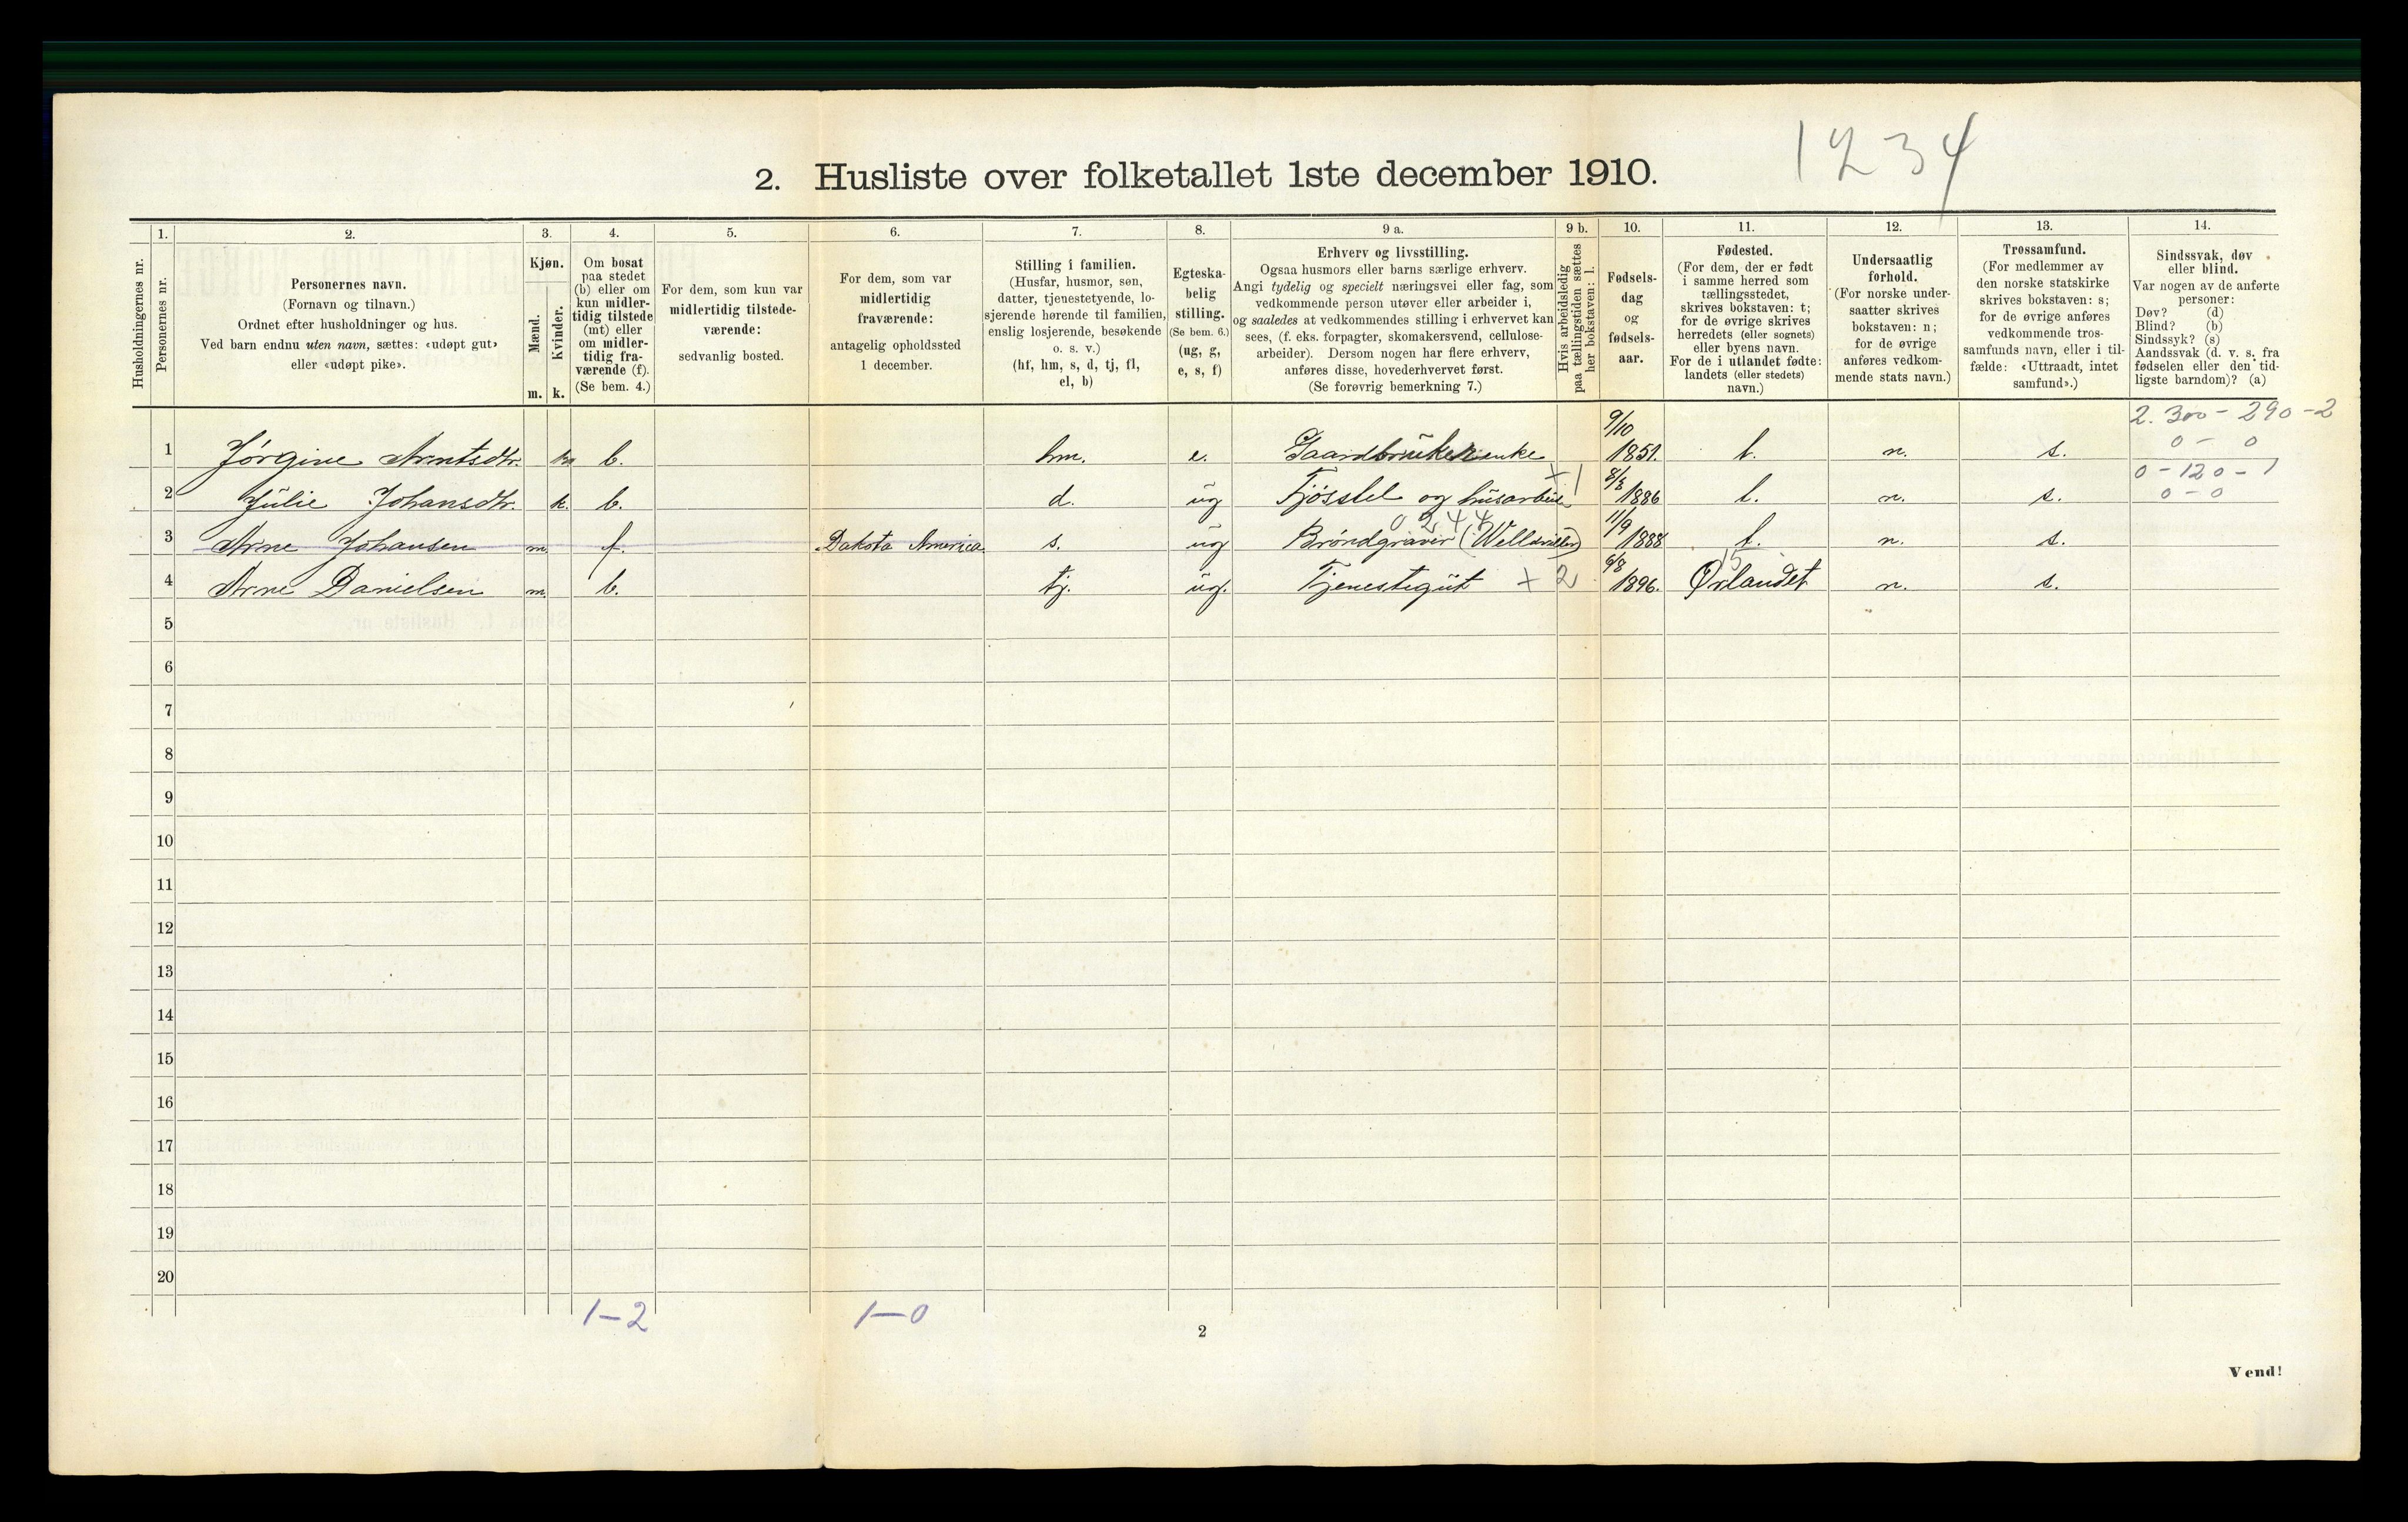 1234
2. Husliste over folketallet 1ste december 1910.
1. 2. 3. 4. 5. 6. 7. 8. 9 a. 9 b. 10. 11. 12. 13. 14.
Husholdningernes nr.
Personernes nr.
Personernes navn.
(Fornavn og tilnavn.)
Ordnet efter husholdninger og hus.
Ved barn endnu uten navn, sættes: «udøpt gut»
eller «udøpt pike».
Kjøn.
Mænd.
Kvinder.
m. k.
Om bosat
paa stedet
(b) eller om
kun midler-
tidig tilstede
(mt) eller
om midler-
tidig fra-
værende (f).
(Se bem. 4.)
For dem, som kun var
midlertidig tilstede-
værende:
sedvanlig bosted.
For dem, som var
midlertidig
fraværende:
antagelig opholdssted
1 december.
Stilling i familien.
(Husfar, husmor, søn,
datter, tjenestetyende, lo-
sjerende hørende til familien,
enslig losjerende, besøkende
o. s. v.)
(hf, hm, s, d, tj, fl,
el, b)
Egteska-
belig
stilling.
(Se bem. 6.)
(ug, g,
e, s, f)
Erhverv og livsstilling.
Ogsaa husmors eller barns særlige erhverv.
Angi tydelig og specielt næringsvei eller fag, som
vedkommende person utøver eller arbeider i,
og saaledes at vedkommendes stilling i erhvervet kan
sees, (f. eks. forpagter, skomakersvend, cellulose-
arbeider). Dersom nogen har flere erhverv,
anføres disse, hovederhvervet først.
(Se forøvrig bemerkning 7.)
Hvis arbeidsledig
paa tællingstiden sættes
her bokstaven: l.
Fødsels-
dag
og
fødsels-
aar.
Fødested.
(For dem, der er født
i samme herred som
tællingsstedet,
skrives bokstaven: t;
for de øvrige skrives
herredets (eller sognets)
eller byens navn.
For de i utlandet fødte:
landets (eller stedets)
navn.)
Undersaatlig
forhold.
(For norske under-
saatter skrives
bokstaven: n;
for de øvrige
anføres vedkom-
mende stats navn.)
Trossamfund.
(For medlemmer av
den norske statskirke
skrives bokstaven: s;
for de øvrige anføres
vedkommende tros-
samfunds navn, eller i til-
fælde: «Uttraadt, intet
samfund».)
Sindssvak, døv
eller blind.
Var nogen av de anførte
personer:
Døv? (d)
Blind? (b)
Sindssyk? (s)
Aandssvak (d. v. s. fra
fødselen eller den tid-
ligste barndom)? (a)
2. 300 - 290 - 2
0 - 0
1 Jørgine Arntsdtr. k. b. hm. e. Gaardbrukerenke 9/10 1851. t. n. s.
0 - 120 - 1
0 - 0
2 Julie Johansdtr. k. b. d. ug Fjøsstel og husarbeide +1 8/8 1886 t. n. s.
0244
3 Arne Johansen m. f. Dakota America. s. ug Brøndgraver (Welldriller) 11/9 1888 t. n. s.
15
4 Arne Danielsen m. b. tj. ug. Tjenestegut + 2 6/8 1896. Ørlandet n. s.
5
6
7
8
9
10
11
12
13
14
15
16
17
18
19
20
1-2 1-0
2
Vend!